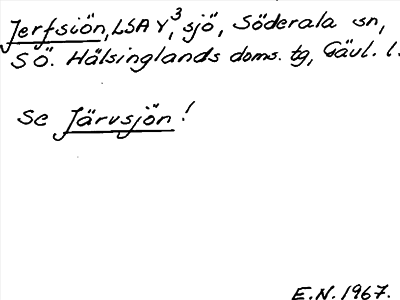 Jerfsiön, LSA Y³, sjö, Söderala sn,
SÖ. Hälsinglands doms. tg, Gävl. l.
Se Järvsjön!
E.N. 1967.